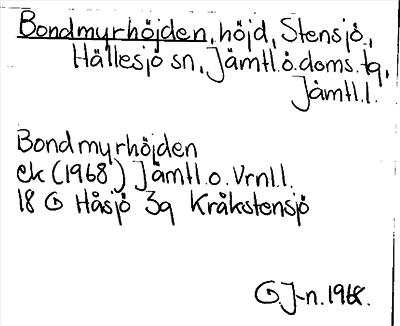 Bondmyrhöjden, höjd, Stensjö,
Hällesjö sn, Jämtl.ö.doms.tg,
Jämtl.l.
Bondmyrhöjden
ek (1968) Jämtl.o.Vrnl.l.
18 G Håsjö 3g Kråkstensjö
G J-n. 1968.